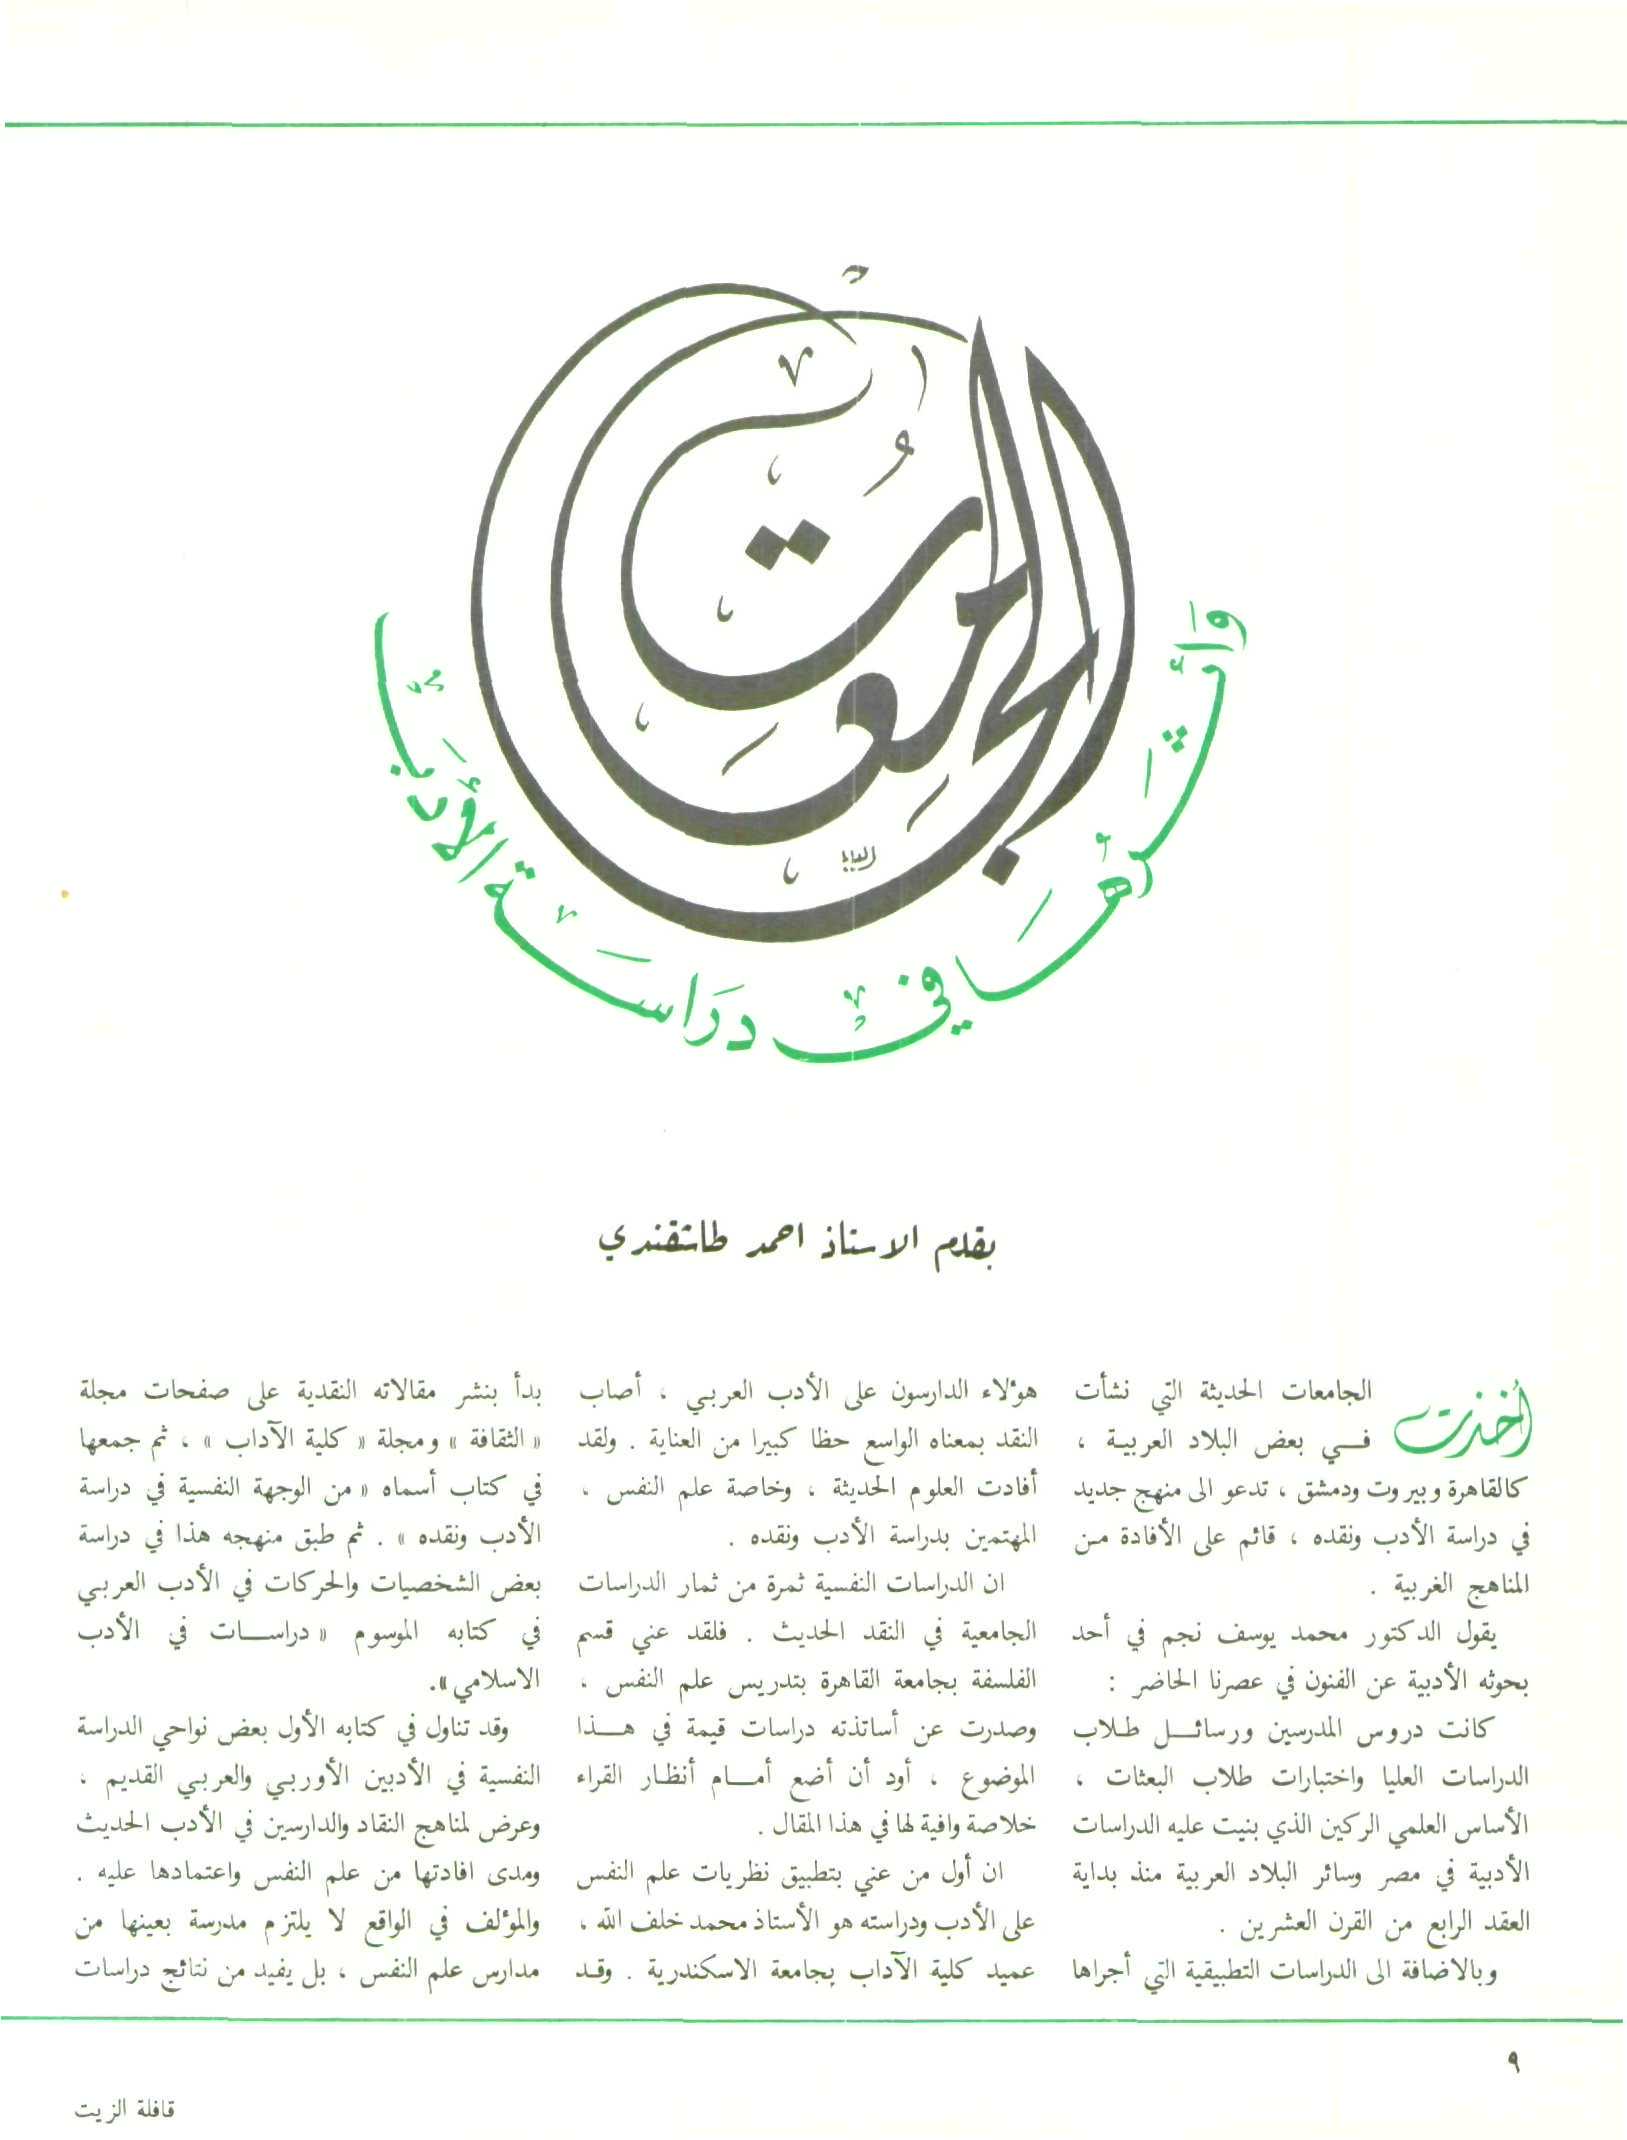 الجامعات
وأثرها في دراسة الأدب
بقلم الاستاذ احمد طاشقندي
أخذت الجامعات الحديثة التي نشأت
فـــي بعض البلاد العربيـة ،
كالقاهرة وبيروت ودمشق ، تدعو الى منهج جديد
في دراسة الأدب ونقده ، قائم على الأفادة مـن
المناهج الغربية .
يقول الدكتور محمد يوسف نجم في أحد
بحوثه الأدبية عن الفنون في عصرنا الحاضر :
كانت دروس المدرسين ورسائـــل طـلاب
الدراسات العليا واختبارات طلاب البعثات ،
الأساس العلمي الركين الذي بنيت عليه الدراسات
الأدبية في مصر وسائر البلاد العربية منذ بداية
العقد الرابع من القرن العشرين .
وبالاضافة الى الدراسات التطبيقية التي أجراها
هؤلاء الدارسون على الأدب العربي ، أصاب
النقد بمعناه الواسع حظا كبيرا من العناية . ولقد
أفادت العلوم الحديثة ، وخاصة علم النفس ،
المهتمين بدراسة الأدب ونقده .
ان الدراسات النفسية ثمرة من ثمار الدراسات
الجامعية في النقد الحديث . فلقد عني قسم
الفلسفة بجامعة القاهرة بتدريس علم النفس ،
وصدرت عن أساتذته دراسات قيمة في هـــذا
الموضوع ، أود أن أضع أمـــام أنظـار القراء
خلاصة وافية لها في هذا المقال .
ان أول من عني بتطبيق نظريات علم النفس
على الأدب ودراسته هو الأستاذ محمد خلف الله ،
عميد كلية الآداب بجامعة الاسكندرية . وقـد
بدأ بنشر مقالاته النقدية على صفحات مجلة
« الثقافة » ومجلة « كلية الآداب » ، ثم جمعها
في كتاب أسماه « من الوجهة النفسية في دراسة
الأدب ونقده » . ثم طبق منهجه هذا في دراسة
بعض الشخصيات والحركات في الأدب العربي
في كتابه الموسوم « دراســـات في الأدب
الاسلامي».
وقد تناول في كتابه الأول بعض نواحي الدراسة
النفسية في الأدبين الأوربي والعربي القديم ،
وعرض لمناهج النقاد والدارسين في الأدب الحديث
ومدى افادتها من علم النفس واعتمادها عليه .
والمؤلف في الواقع لا يلتزم مدرسة بعينها من
مدارس علم النفس ، بل يفيد من نتائج دراسات
٩
قافلة الزيت